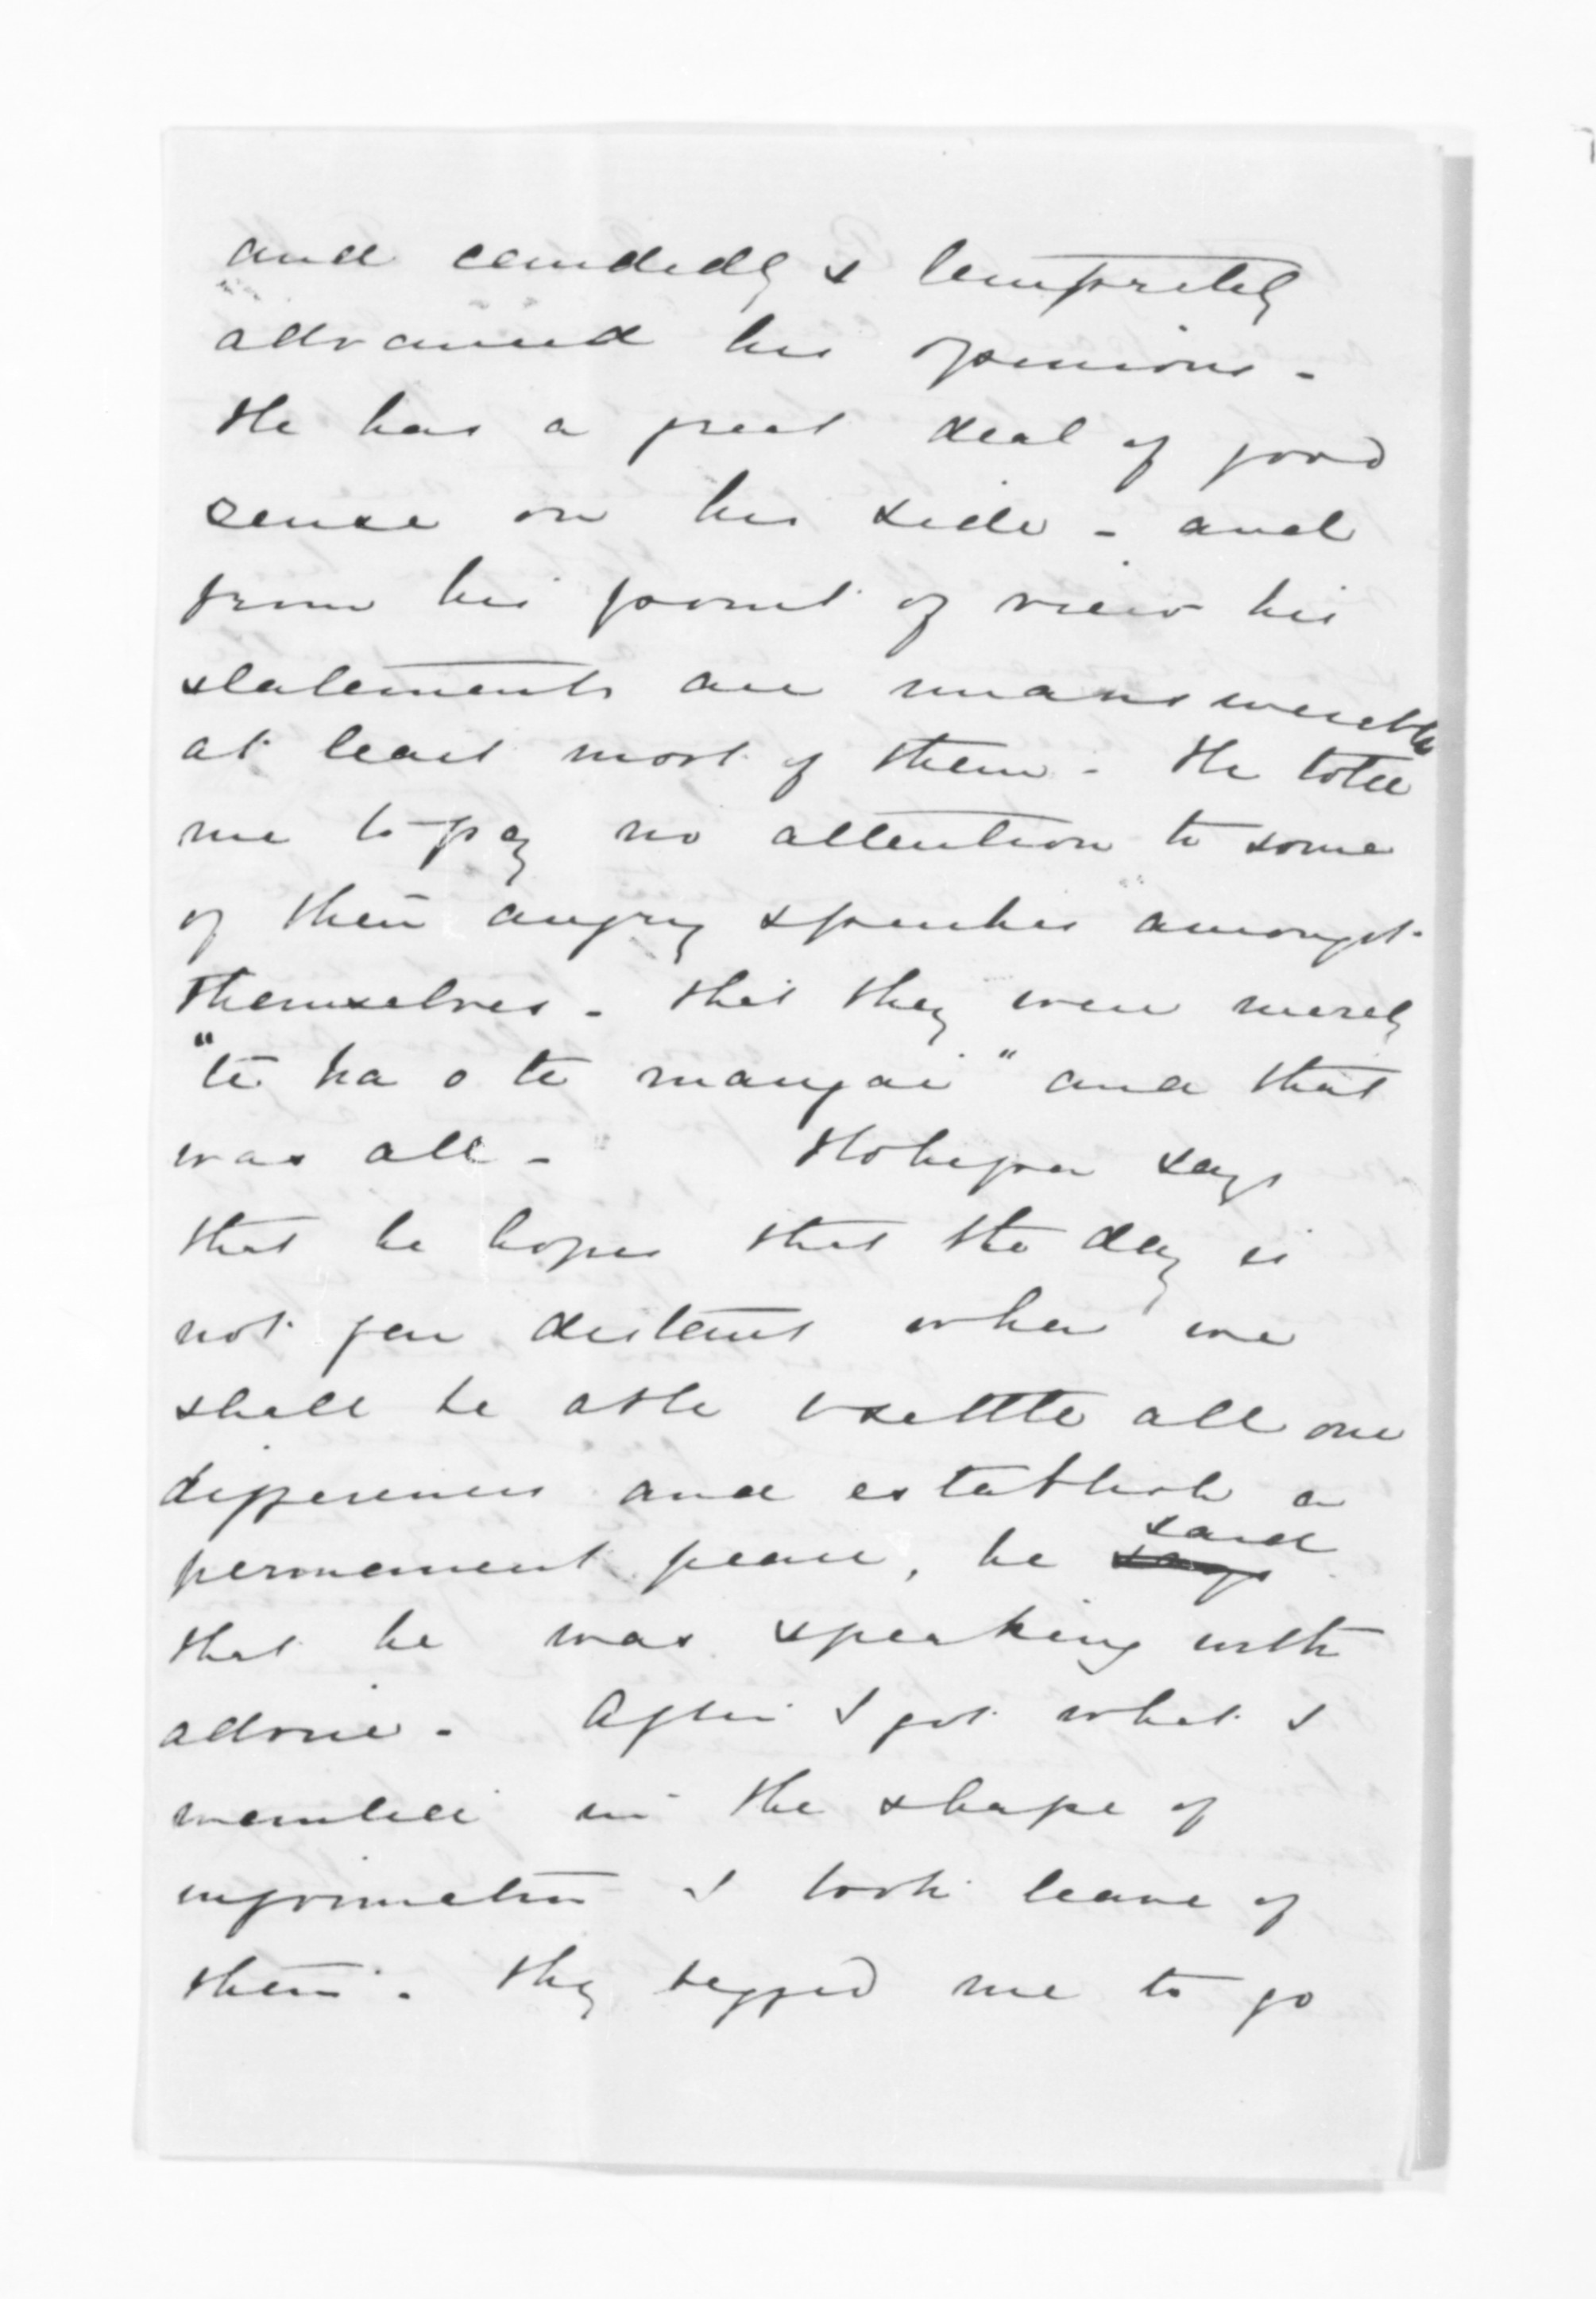 and candidly & temprately
advanced his opinions -
He has a great deal of good
sense on his side - and
from his point of view his
statements are unanswerable
at least most of them - He told
me to pay no attention to some
of their angry speeches amongst
themselves - that they were merely
"te ha o te mangai" and that
was all - Hohepa says
that he hopes that the day is
not far distant when we
shall be able to settle all our
differences and establish a
permanent peace, he says said
that he was speaking with
advice - After I got what I
wanted in the shape of
information I took leave of
them - They begged me to go